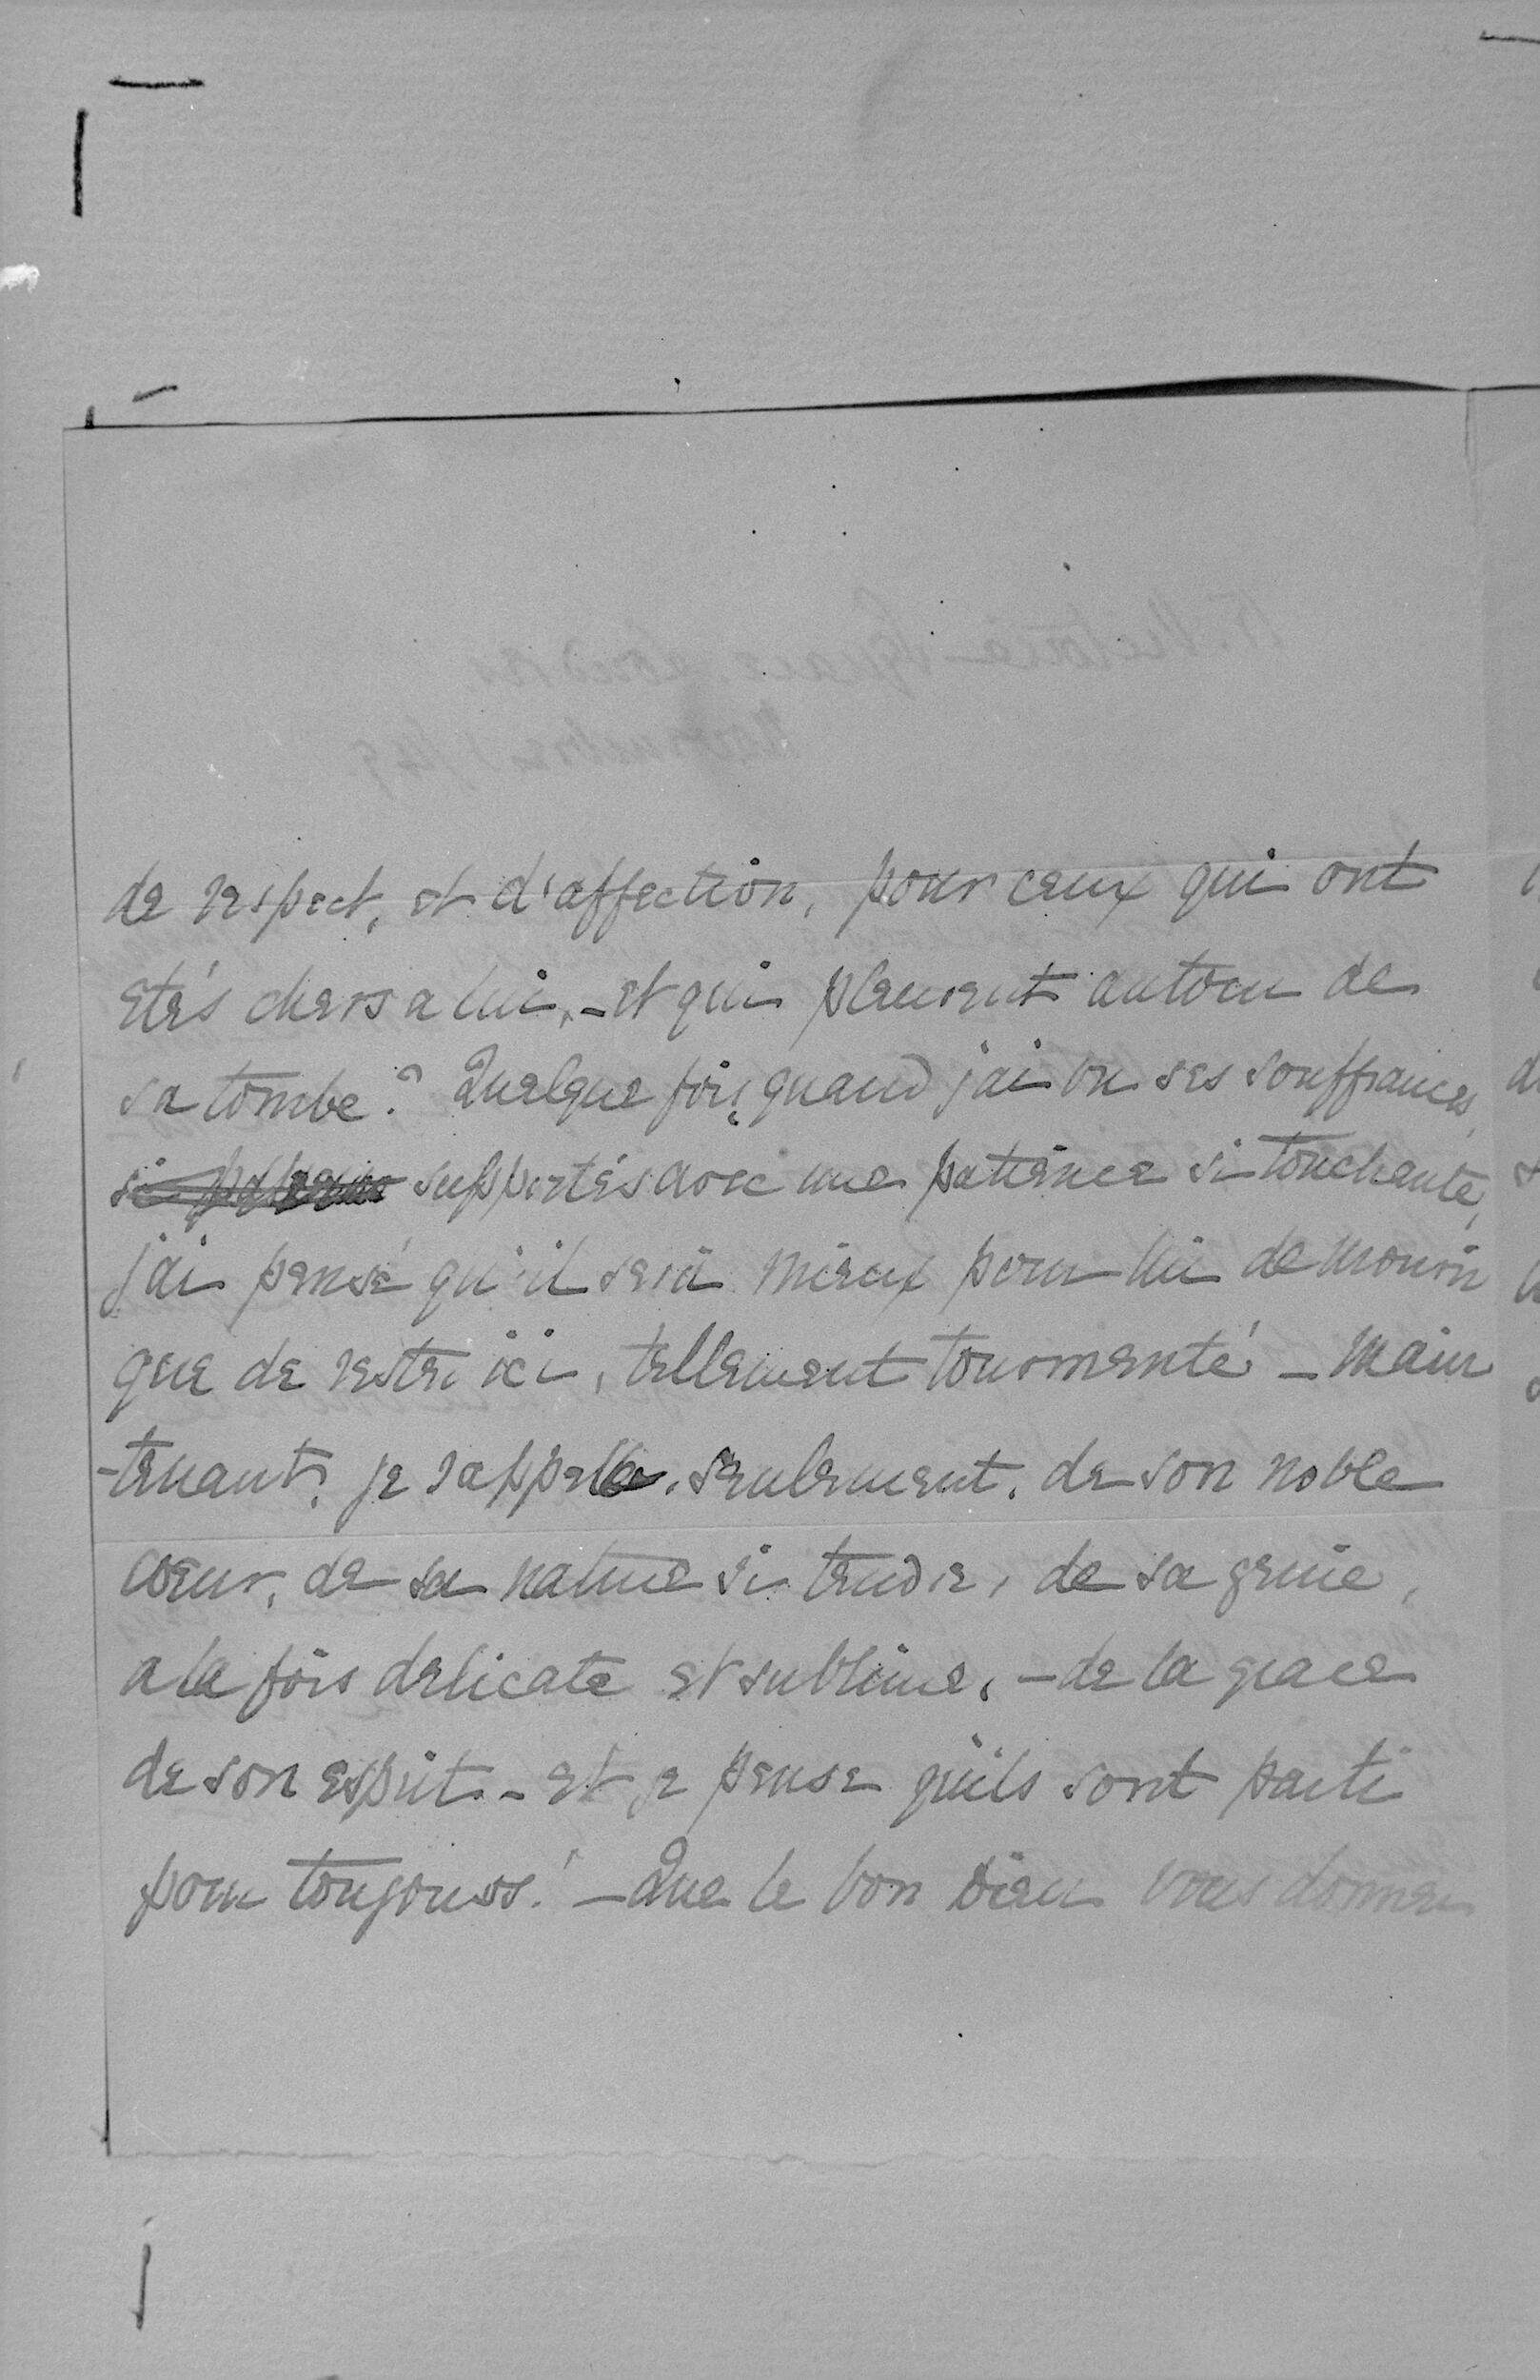 de respect, et d'affection, pour ceux qui ont
etés chers a lui, - et qui pleurent autour de
sa tombe? Quelque fois, quand j'ai vu ses souffrances,
supportés avec une patience si touchante,
j'ai pensé qu'il sera mieux pour lui de mourir
que de rester ici, tellement tourmenté - Main
-tenant, je rappelle, seulement, de son noble
cœur, de sa nature si tendre, de sa genie,
a la fois delicate et sublime, - de la grace
de son esprit - et je pense qu'ils sont parti
pour toujours! - Que le bon Dieu vous donner